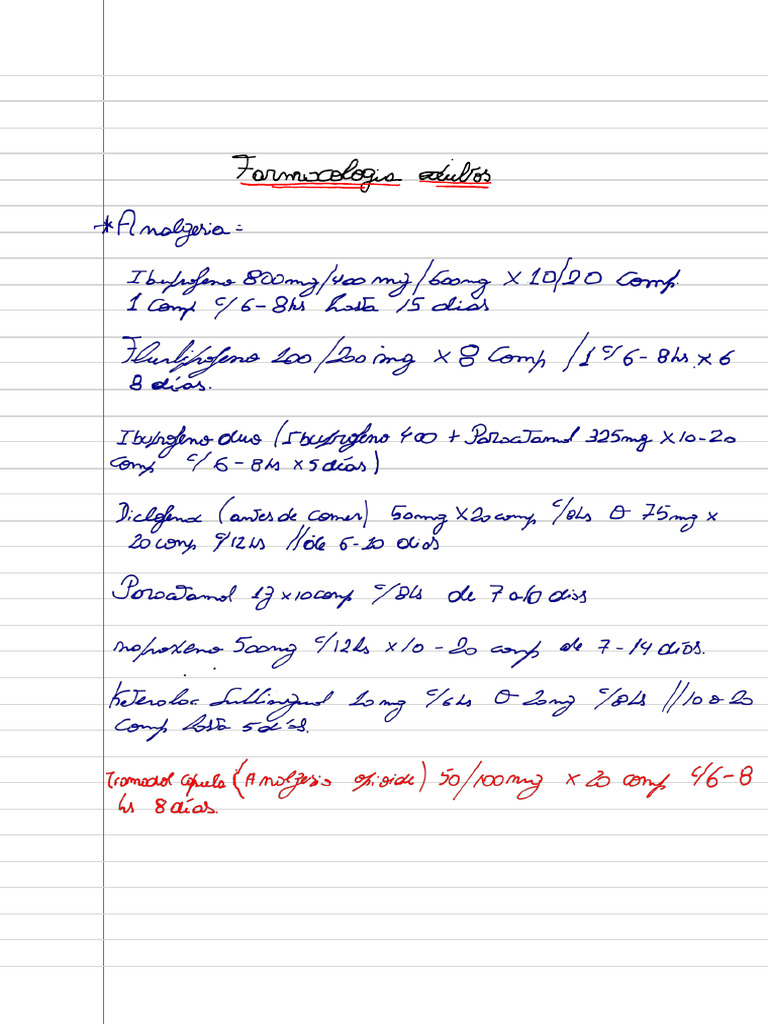 Farmacologia adultos
* Analgesia =
Ibuprofeno 800mg/400mg/600mg x 10/20 comp.
1 comp c/ 6-8hs hasta 15 dias
Flurbiprofeno 100/200 mg x 8 comp / 1 c/6-8hs x 6
8 días.
Ibuprofeno duo (Ibuprofeno 400 + Paracetamol 325mg x 10-20
comp c/ 6-8hs x 5 días)
Diclofenac (antes de comer) 50mg x 20 comp c/8hs o 75mg x
20 comp c/12hs // de 5-10 dias
Paracetamol 1g x 10 comp c/8hs de 7 a 10 dias
naproxeno 500mg c/12hs x 10-20 comp de 7-14 días.
Keterolac Sublingual 10mg c/6hs o 20mg c/8hs // 10 o 20
comp hasta 5 días.
Tramadol Capsula (Analgesia opioide) 50/100mg x 20 comp c/6-8
hs 8 días.